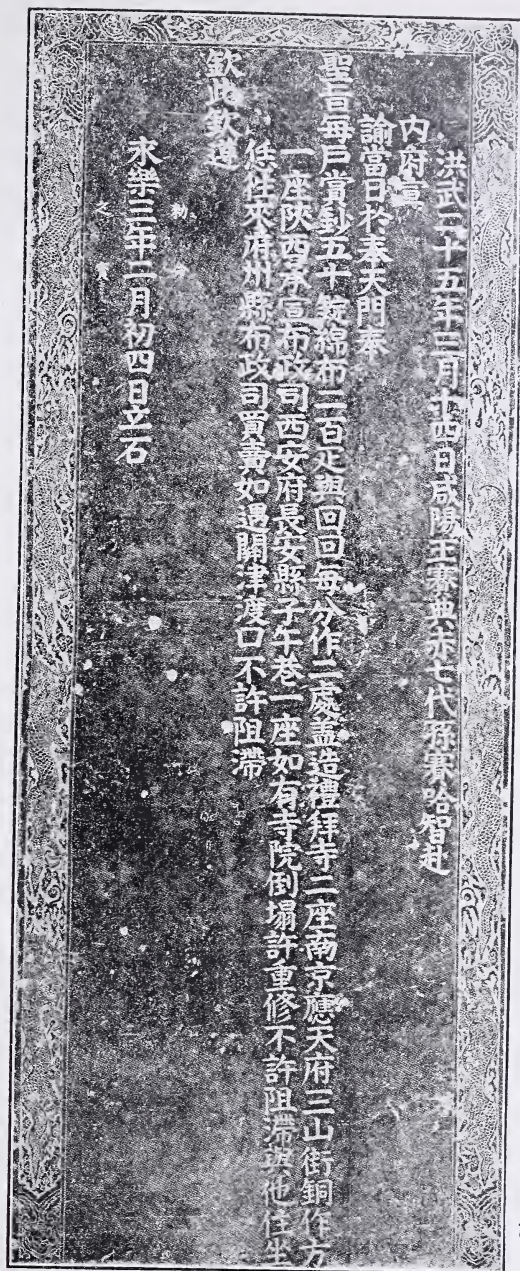 洪武二十五年三月十四日咸陽王賽典赤七代孫賽哈智赴
內府宣
諭當日於奉天門奉
聖旨每戶賞鈔五十錠綿布二百疋與回回每分作二處蓋造禮拜寺二座南京應天府三山街銅作方
一座陝西承宣布政司西安府長安縣子午巷一座如有寺院倒塌許重修不許阻滯與他住坐
恁往來府州縣布政司買賣如遇關津渡口不許阻滯
欽此欽遵
永樂三年二月初四日立石
之寶